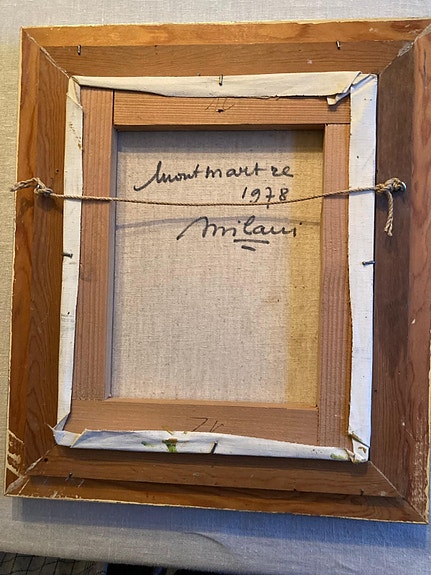 Montmartre
1978
Milani